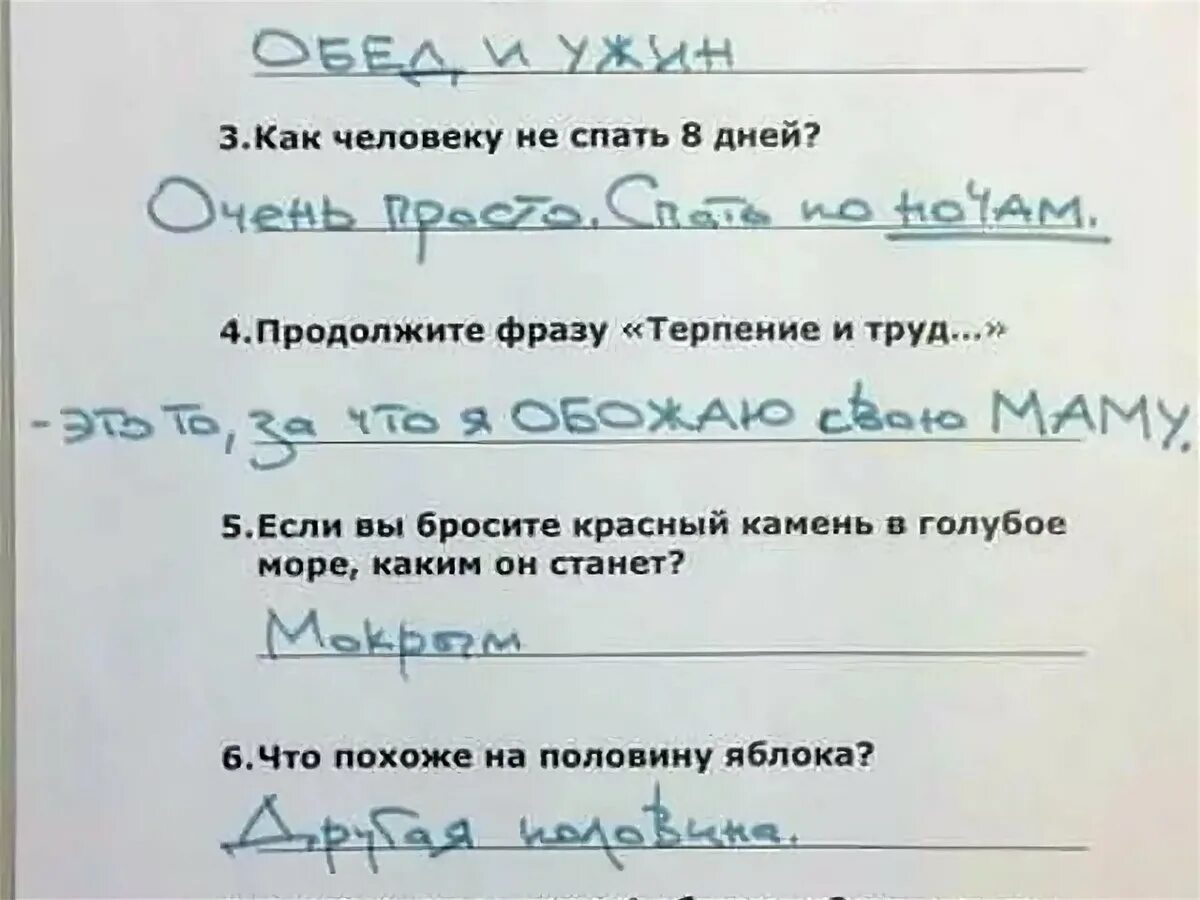 ОБЕД И УЖИН
3.Как человеку не спать 8 дней?
Очень просто. Спать по ноЧАМ.
4.Продолжите фразу «Терпение и труд...»
- это то, за что я ОБОЖАЮ свою МАМУ.
5.Если вы бросите красный камень в голубое
море, каким он станет?
Мокрым
6.Что похоже на половину яблока?
Другая половина.